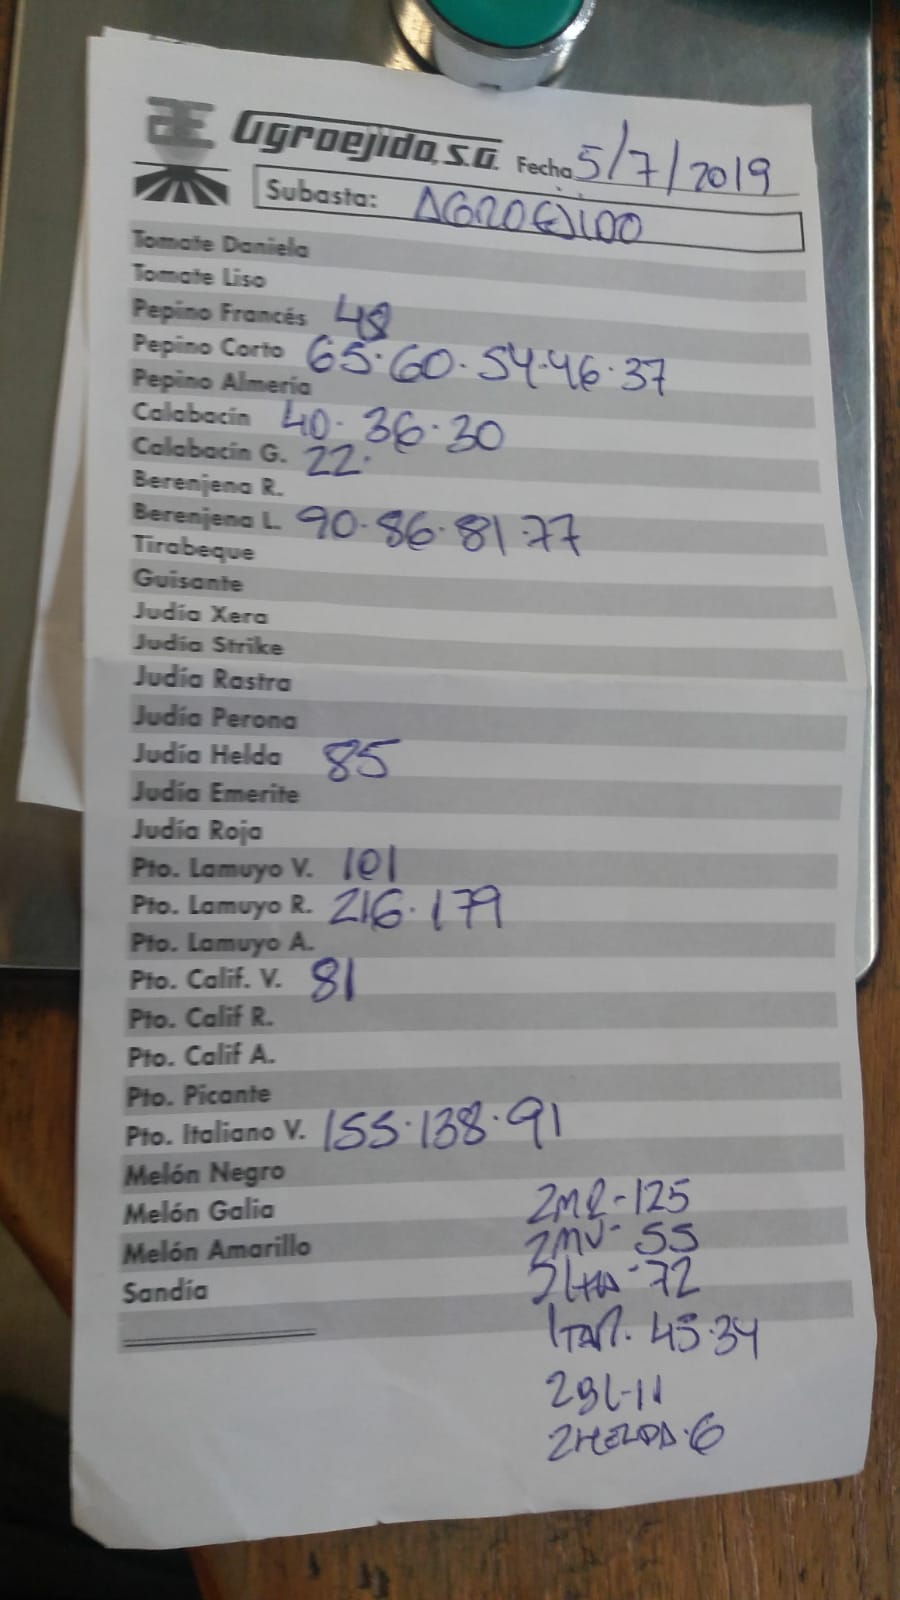 AE Agroejido, S.A. Fecha 5/7/2019
Subasta: AGROEJIDO
Tomate Daniela
Tomate Liso
Pepino Francés 48
Pepino Corto 65·60·54·46·37
Pepino Almería
Calabacín 40·36·30
Calabacín G. 22·
Berenjena R.
Berenjena L. 90·86·81·77
Tirabeque
Guisante
Judía Xera
Judía Strike
Judía Rastra
Judía Perona
Judía Helda 85
Judía Emerite
Judía Roja
Pto. Lamuyo V. 101
Pto. Lamuyo R. 216·179
Pto. Lamuyo A.
Pto. Calif. V. 81
Pto. Calif R.
Pto. Calif A.
Pto. Picante
Pto. Italiano V. 155·138·91
Melón Negro
Melón Galia
Melón Amarillo
Sandía
2MR-125
2MV-55
72
45·34
2BL-11
2HELDA·6